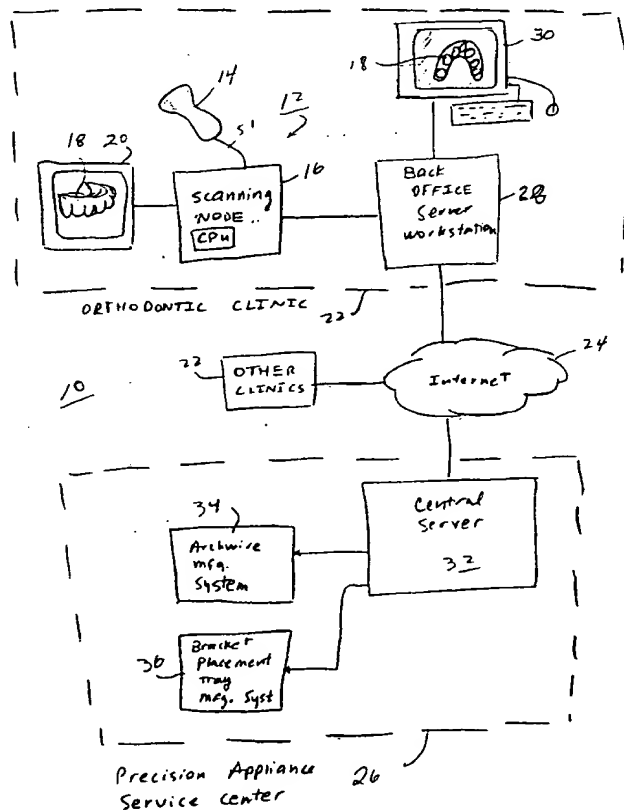 30
18
14
12
S'
18
20
16
Scanning
NODE
CPU
Back
OFFICE
Server
workstation
28
ORTHODONTIC CLINIC
22
24
22
OTHER
CLINICS
Internet
10
34
Archwire
mfg.
System
Central
Server
32
36
Bracket
Placement
Tray
mfg. Syst
Precision Appliance
Service center
26